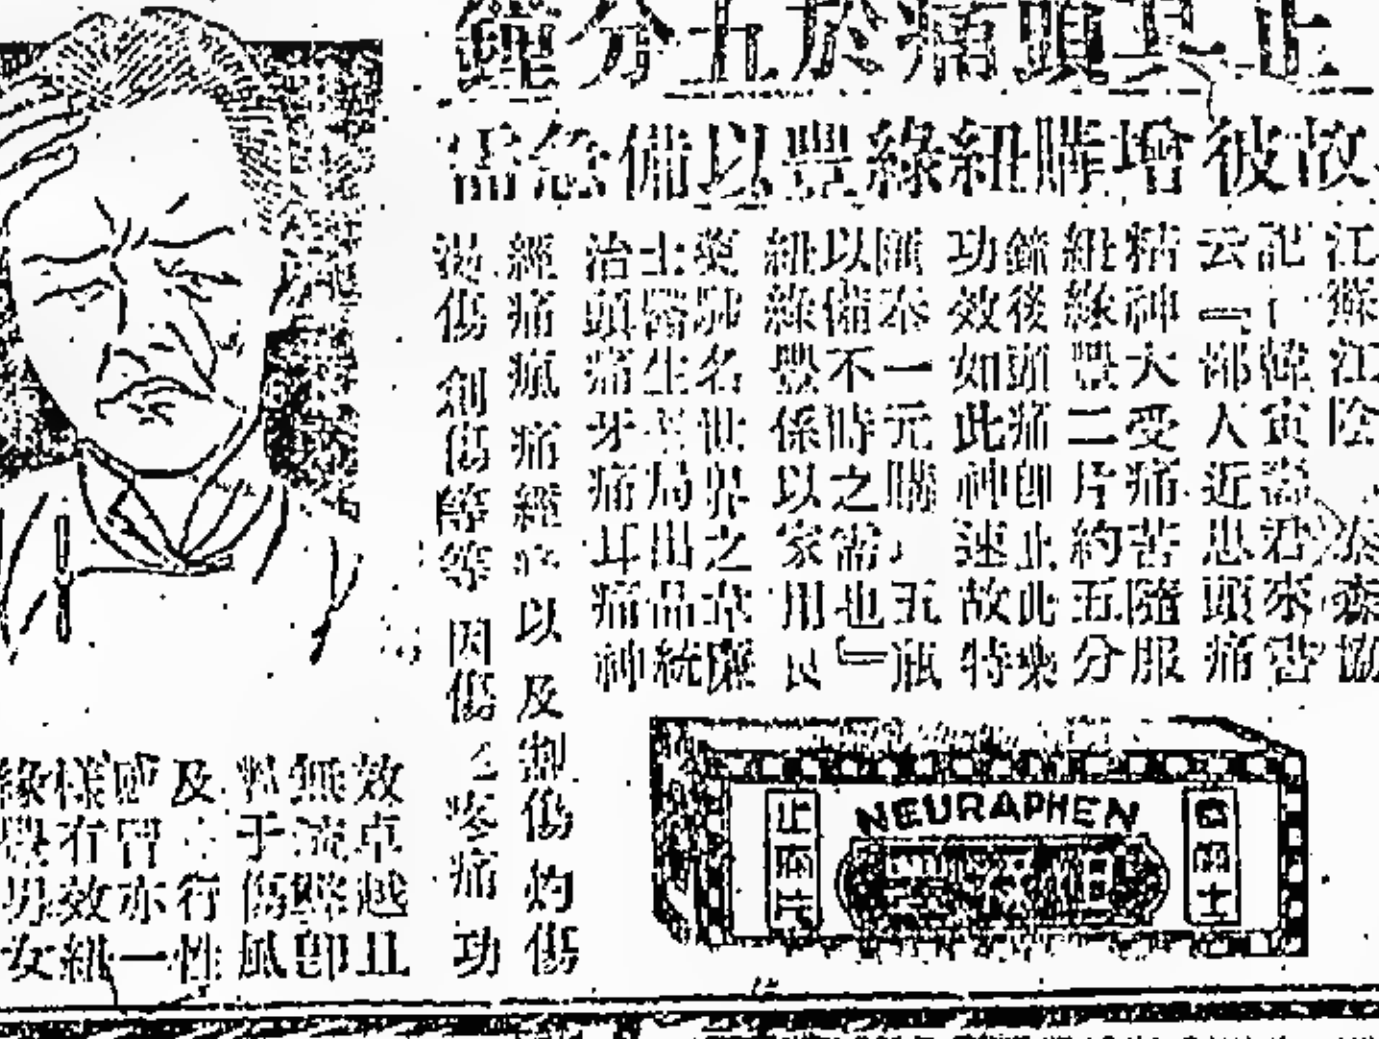 止其頭痛於五分鐘
故彼增購紐綠豐以備急需
江蘇江陰 森協
記 韓寅 君來書
云『鄙人近患頭痛
精神大受痛苦隨服
紐綠豐二片約五分
鐘後頭痛即止此藥
功效如此神速故特
匯奉一元購 五瓶
以備不時之需也』
紐綠豐係以家用良
藥馳名世界之韋廉
士醫生藥局出品統
治頭痛牙痛耳痛神
經痛瘋痛經痛以及割傷灼傷
燙傷創傷等等因傷之疼痛功
效卓越且
無流弊即
對于傷風
及 行性
感冒亦一
樣有效紐
綠豐男女
韋廉士
NEURAPHEN
止痛片